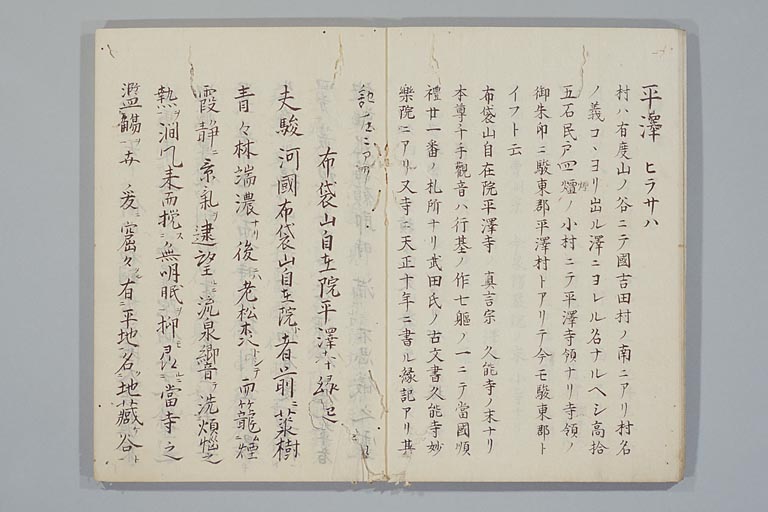 平澤 ヒラサハ
村ハ有度山ノ谷ニテ國吉田村ノ南ニアリ村名
ノ義コヽヨリ出ル澤ニヨレル名ナルヘシ高拾
五石民戸四烟ノ小村ニテ平澤寺領ナリ寺領ノ
御朱印ニ駿東郡平澤村トアリテ今モ駿東郡ト
イフト云
布袋山自在院平澤寺 真言宗 久能寺ノ末ナリ
本尊千手觀音ハ行基ノ作七軀ノ一ニテ當國順
禮廿一番ノ札所ナリ武田氏ノ古文書久能寺妙
樂院ニアリ又寺ニ天正十年ニ書ル縁記アリ其
記左ニアリ
布袋山自在院平澤寺縁起
夫駿河國布袋山自在院者前ニ菓樹
青々林端濃ナリ後ニハ老松森々トシテ而籠煙
霞靜ニ京氣ヲ遠望ニ流泉響音ヲ洗煩惱之
熱ヲ澗風来而攪ス無明眠ヲ抑尋ニ當寺之
濫觴ヲ爰ニ窟々有平地名ヲ地藏谷ト